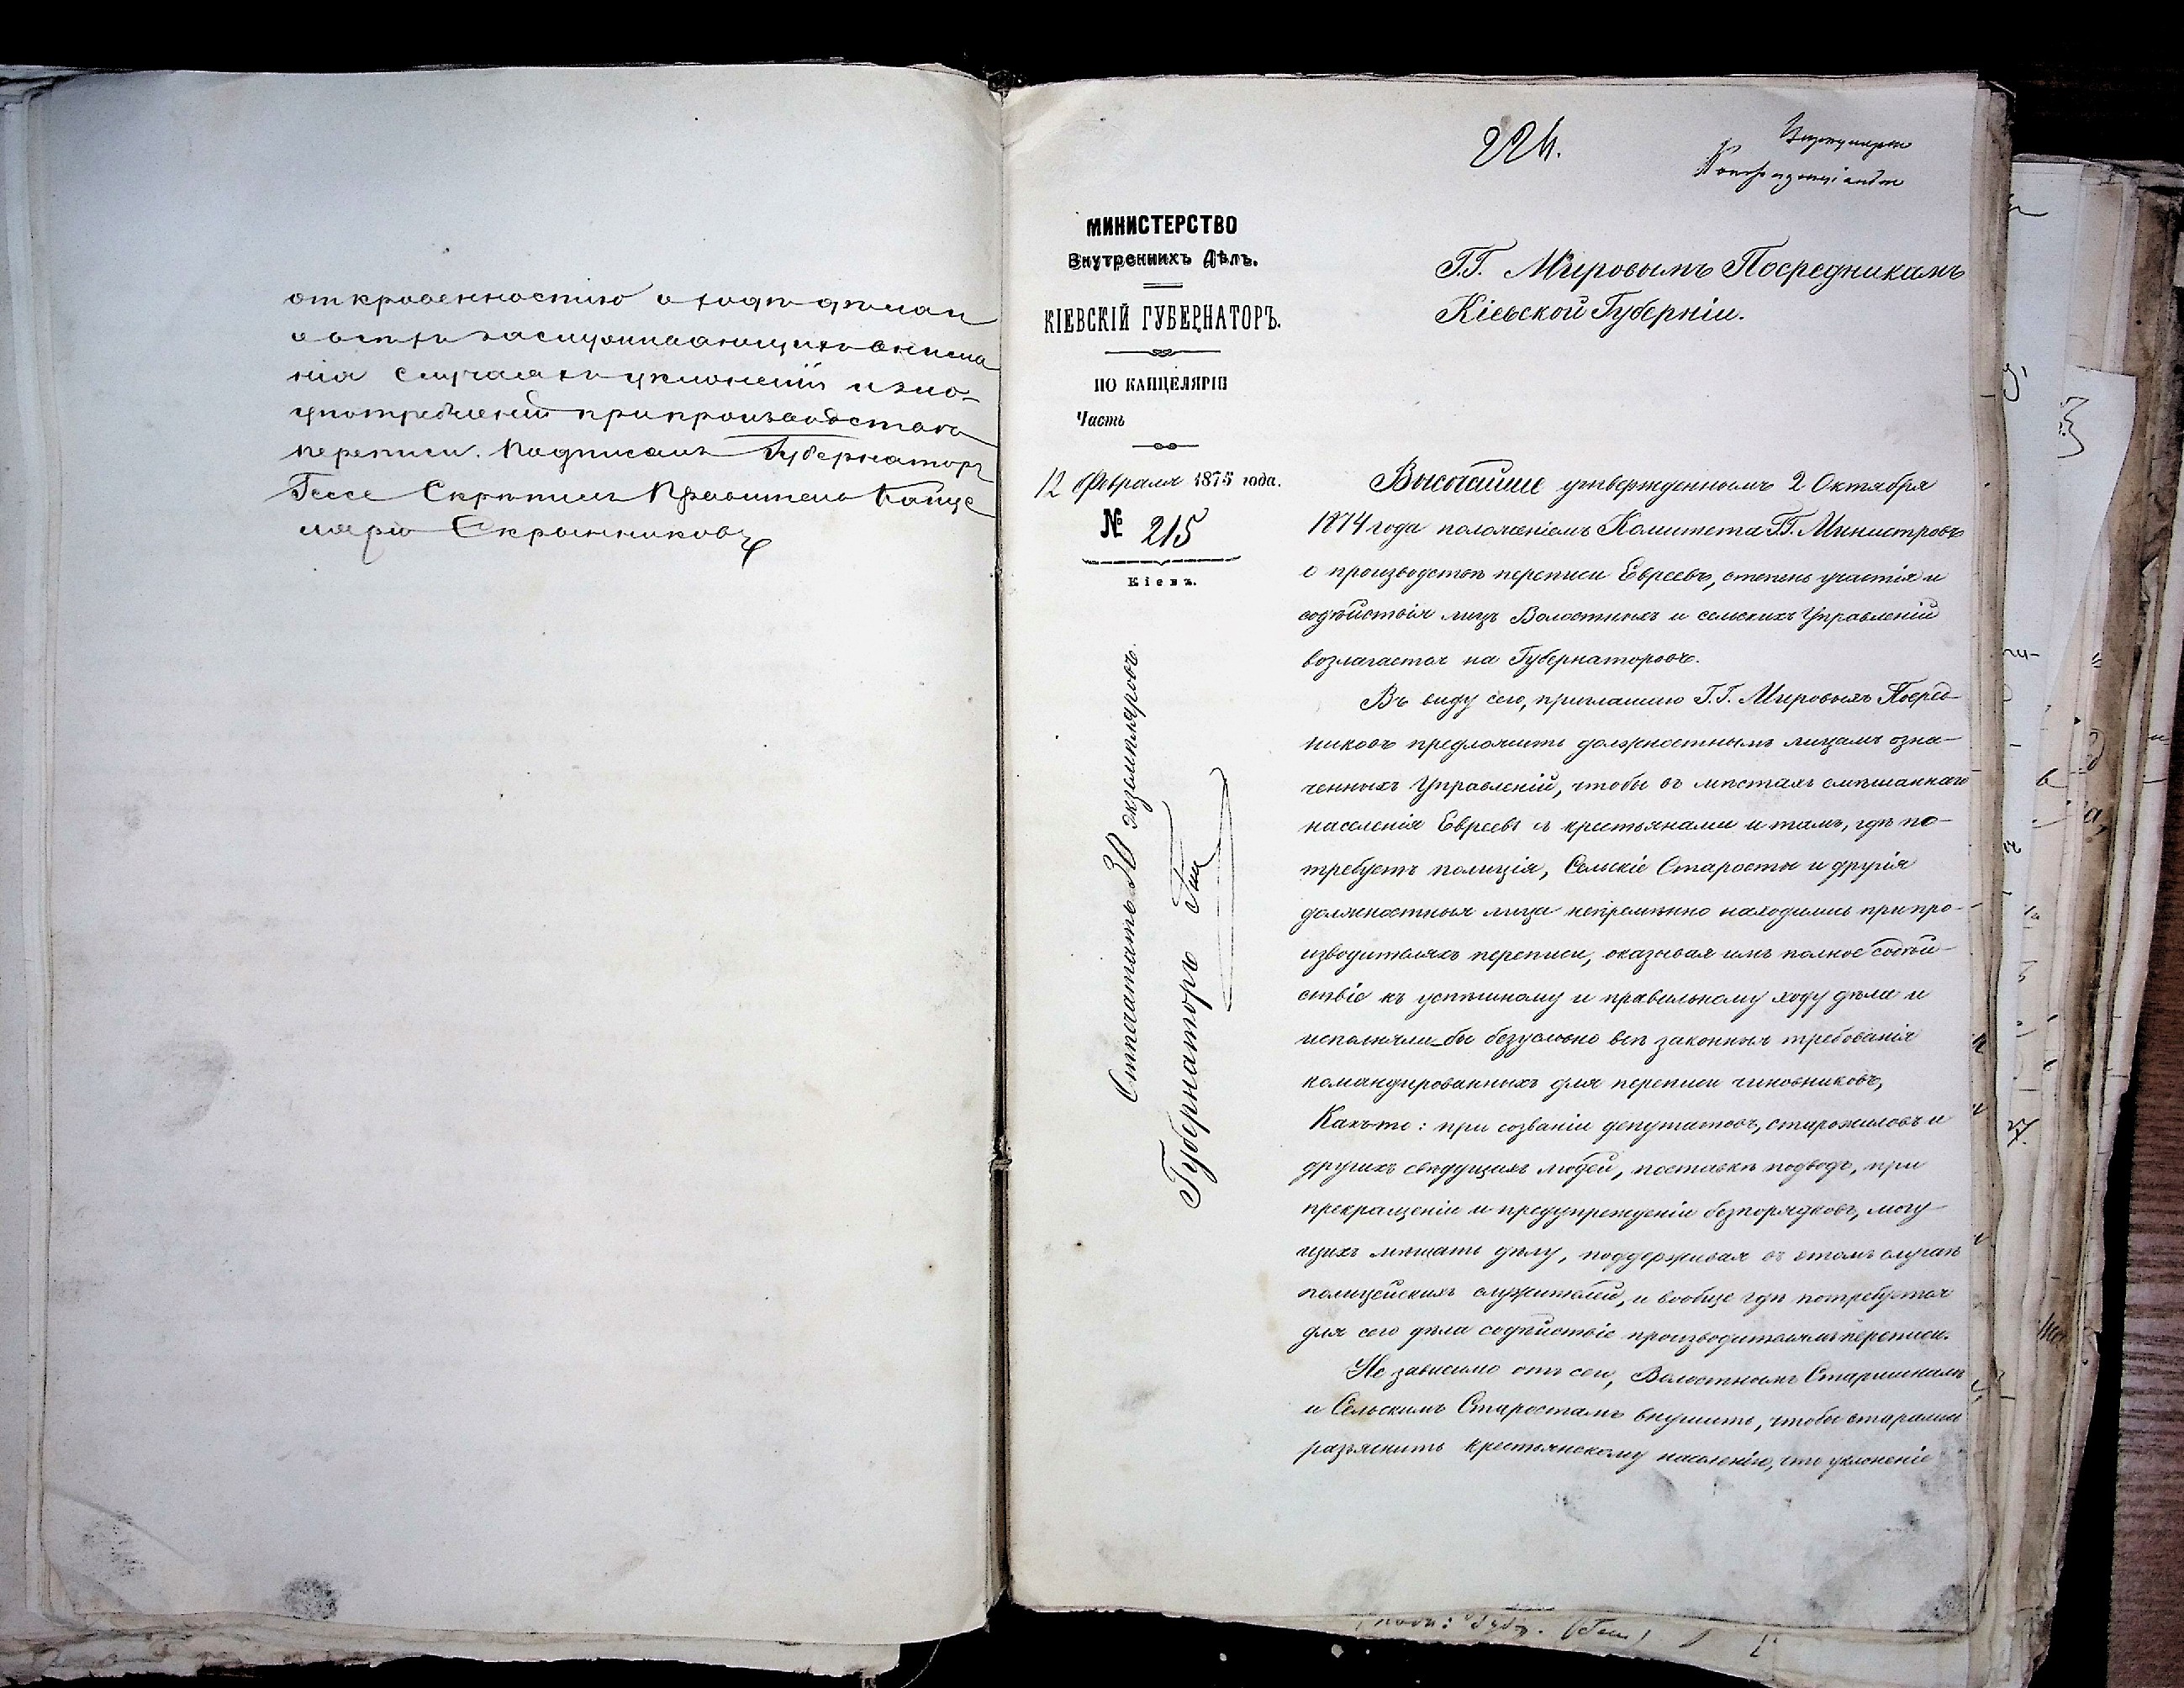 откровенностію о ходѣ дѣла и
о всѣхъ заслуживающихъ внима
нія случаяхъ уклоненій и зло-
употребленій при производствѣ
переписи. Подписалъ Губернаторъ
Гессе Скрѣпилъ Правитель Канце
ляріи Скрынниковъ
224.
Циркулярно
МИНИСТЕРСТВО
Внутреннихъ Дѣлъ.
КІЕВСКІЙ ГУБЕРНАТОРЪ.
ПО КАНЦЕЛЯРІИ
Часть
12 Февраля 1875 года.
№ 215
Кіевъ.
Отпечатать 30 экземпляровъ.
Губернаторъ
Г.Г. Мировымъ Посредникамъ
Кіевской Губерніи.
Высочайше утвержденнымъ 2 Октября
1874 года положеніемъ Комитета Г.Г. Министровъ
о производствѣ переписи Евреевъ, степень участія и
содѣйствія лицъ Волостныхъ и сельскихъ Управленій
возлагается на Губернаторовъ.
Въ виду сего, приглашаю Г.Г. Мировыхъ Посред-
никовъ предложить должностнымъ лицамъ озна-
ченныхъ Управленій, чтобы въ мѣстахъ смѣшаннаго
населенія Евреевъ съ крестьянами и тамъ, гдѣ по-
требуетъ полиція, Сельскіе Старосты и другія
должностныя лица непремѣнно находились при про-
изводителяхъ переписи, оказывая имъ полное содѣй-
ствіе къ успѣшному и правильному ходу дѣла и
исполняли-бы безусловно всѣ законныя требованія
командированныхъ для переписи чиновниковъ,
Какъ-то: при созваніи депутатовъ, старожиловъ и
другихъ свѣдущихъ людей, поставкѣ подводъ, при
прекращеніи и предупрежденіи безпорядковъ, могу-
щихъ мѣшать дѣлу, поддерживая въ этомъ случаѣ
полицейскихъ служителей, и вообще гдѣ потребуется
для сего дѣла содѣйствіе производителямъ переписи.
Не зависимо отъ сего, Волостнымъ Старшинамъ
и Сельскимъ Старостамъ внушить, чтобы старались
разъяснить крестьянскому населенію, что уклоненіе